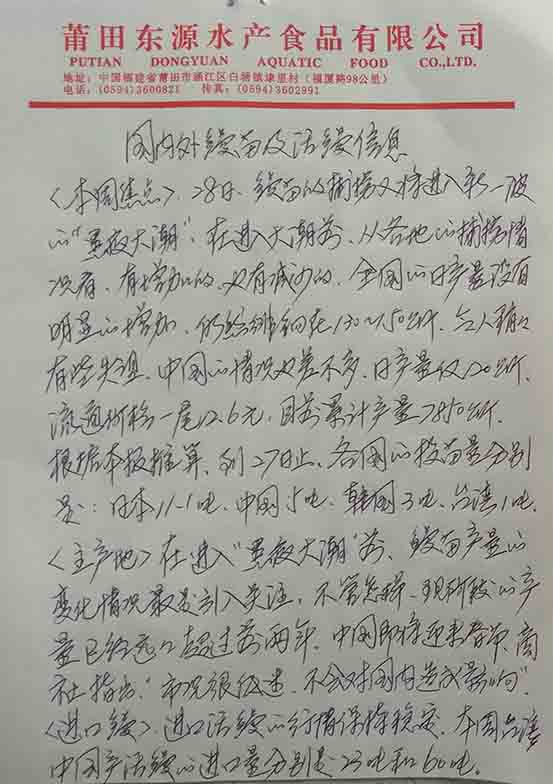 莆田东源水产食品有限公司
PUTIAN DONGYUAN AQUATIC FOOD CO.,LTD.
地址：中国福建省莆田市涵江区白塘镇埭里村（福厦路98公里）
电话：(0594)3600821 传真：(0594)3602991
国内外鳗苗及活鳗信息
〈本周焦点〉28日、鳗苗的捕捞又将进入新一波
的“黑夜大潮”。在进入大潮前、从各地的捕捞情
况看、有增加的、也有减少的、全国的日产量没有
明显的增加、仍徘徊在130~150公斤、令人稍稍
有些失望、中国的情况也差不多、日产量仅120公斤、
流通价格一尾12.6元、目前累计产量7850公斤、
根据本报推算、到27日止、各国的投苗量分别
是：日本11.1吨、中国5吨、韩国3吨、台湾1吨、
〈主产地〉在进入“黑夜大潮”前、鳗苗产量的
变化情况最是引人关注、不管怎样、现阶段的产
量已经远远超过前两年、中国即将迎来春节、商
社指出：“市况很低迷、不会对国内造成影响”。
〈进口鳗〉、进口活鳗的行情保持稳定、本周台湾
中国产活鳗的进口量分别是23吨和60吨、